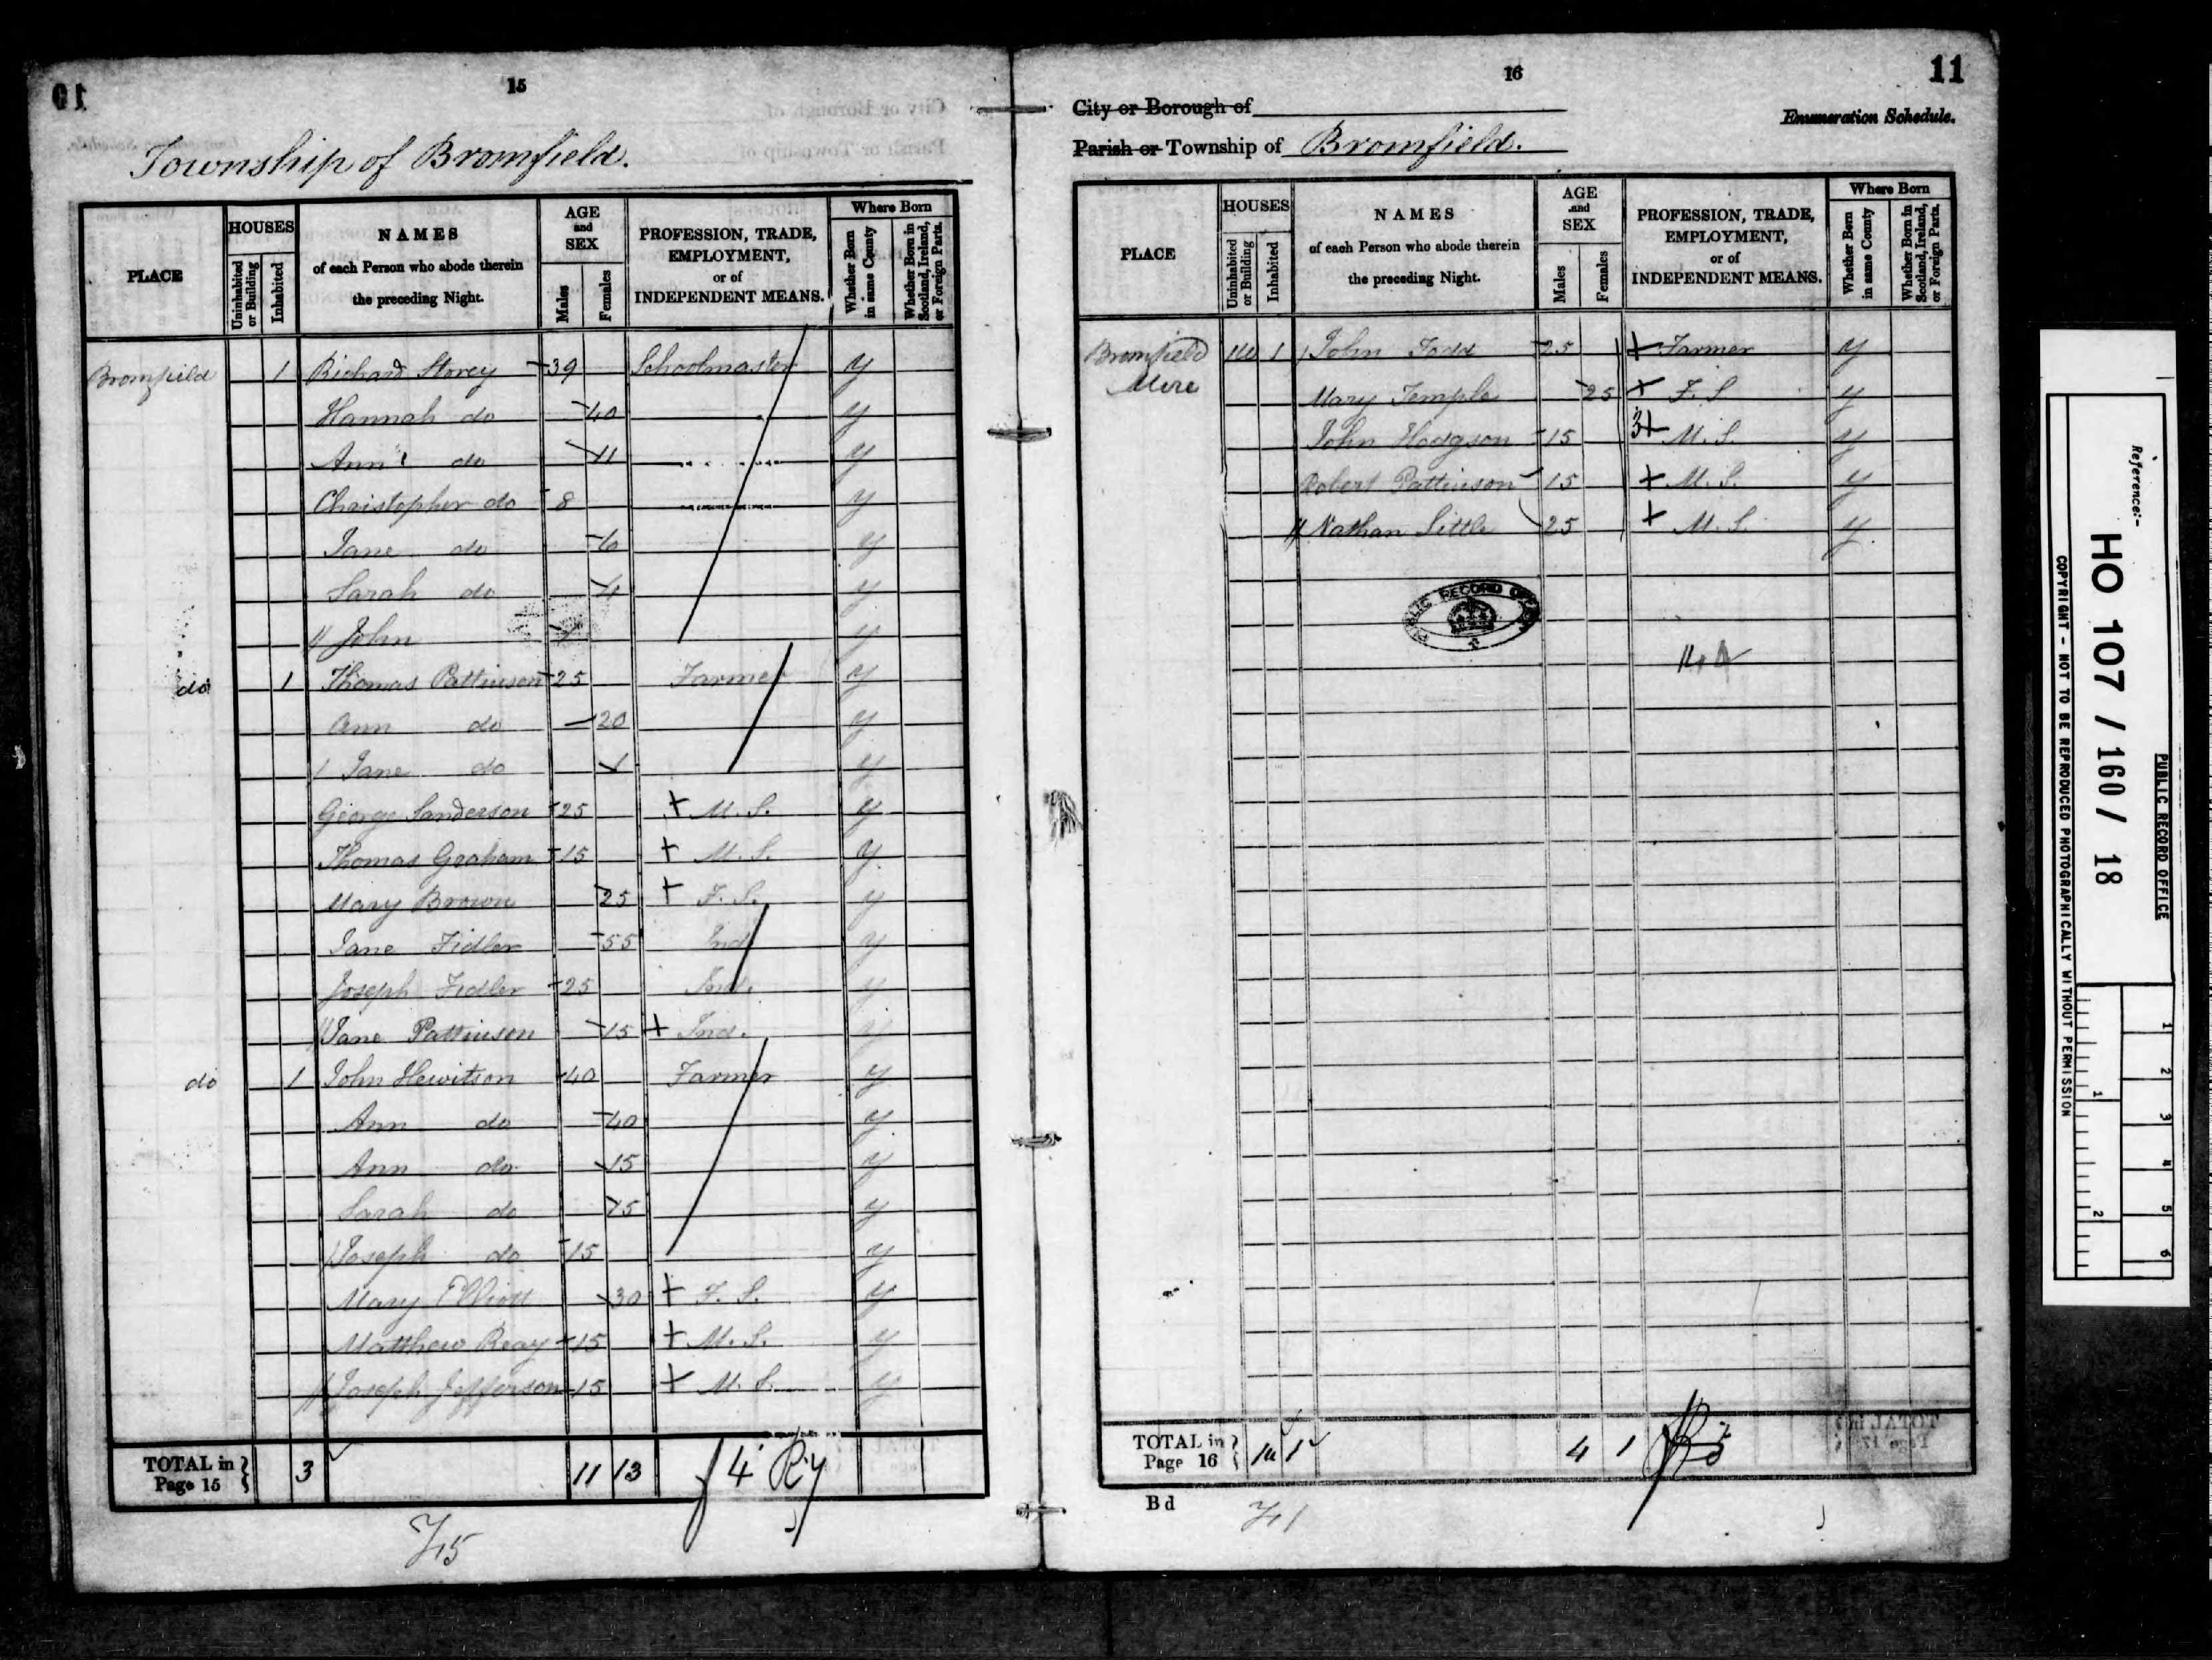 15
Township of Bromfield.
PLACE
HOUSES
Uninhabited or Building
Inhabited
NAMES
of each Person who abode therein
the preceding Night.
AGE
and
SEX
Males
Females
PROFESSION, TRADE,
EMPLOYMENT,
or of
INDEPENDENT MEANS.
Where Born
Whether Born in same County
Whether Born in Scotland, Ireland, or Foreign Parts.
Bromfield 1 Richard Storey 39 Schoolmaster y
Hannah do 40 y
Ann do 11 y
Christopher do 8 y
Jane do 6 y
Sarah do 4 y
John 1 y
do 1 Thomas Pattinson 25 Farmer y
Ann do 20 y
Jane do 1 y
George Sanderson 25 + M. S. y
Thomas Graham 15 + M. S. y
Mary Brown 25 + F. S. y
Jane Fidler 55 Ind y
Joseph Fidler 25 Ind. y
Jane Pattinson 15 + Ind. y
do 1 John Hewitson 40 Farmer y
Ann do 40 y
Ann do 15 y
Sarah do 15 y
Joseph do 15 y
Mary Elliott 30 + F. S. y
Matthew Reay 15 + M. S. y
Joseph Jefferson 15 + M. S. y
TOTAL in Page 15 } 3 11 13
16
11
City or Borough of
Enumeration Schedule.
Parish or Township of Bromfield.
PLACE
HOUSES
Uninhabited or Building
Inhabited
NAMES
of each Person who abode therein
the preceding Night.
AGE
and
SEX
Males
Females
PROFESSION, TRADE,
EMPLOYMENT,
or of
INDEPENDENT MEANS.
Where Born
Whether Born in same County
Whether Born in Scotland, Ireland, or Foreign Parts.
Bromfield 1 John Todd 25 + Farmer y
Mire
Mary Temple 25 + F. S y
John Hodgson 15 + M. S. y
Robert Pattinson 15 + M. S. y
Nathan Little 25 + M. S. y
PUBLIC RECORD OFFICE
TOTAL in Page 16 } 1 4 1
Bd
Reference:-
PUBLIC RECORD OFFICE
HO 107 / 160 / 18
COPYRIGHT - NOT TO BE REPRODUCED PHOTOGRAPHICALLY WITHOUT PERMISSION
1 2 3 4 5 6
1 2